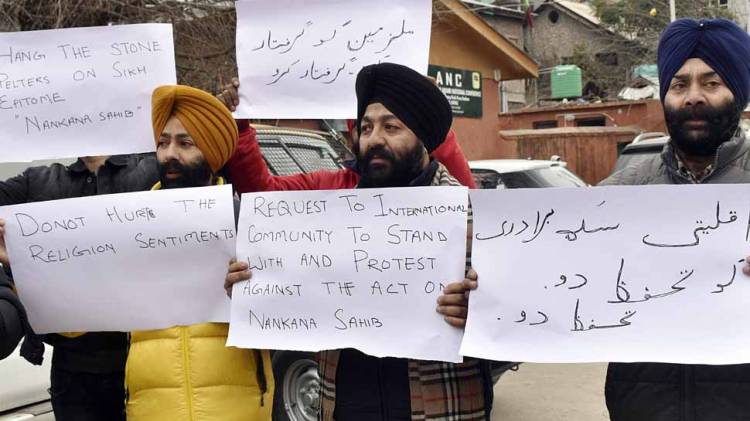 HANG THE STONE
PELTERS ON SIKH
EPTOME
"NANKANA SAHIB"
ملزمین کو گرفتار
گرفتار کرو
ANC
DONOT HURTE THE
RELIGION SENTIMENTS
REQUEST TO INTERNATIONAL
COMMUNITY TO STAND
WITH AND PROTEST
AGAINST THE ACT ON
NANKANA SAHIB
اقلیتی سکھ برادری
کو تحفظ دو.
تحفظ دو.